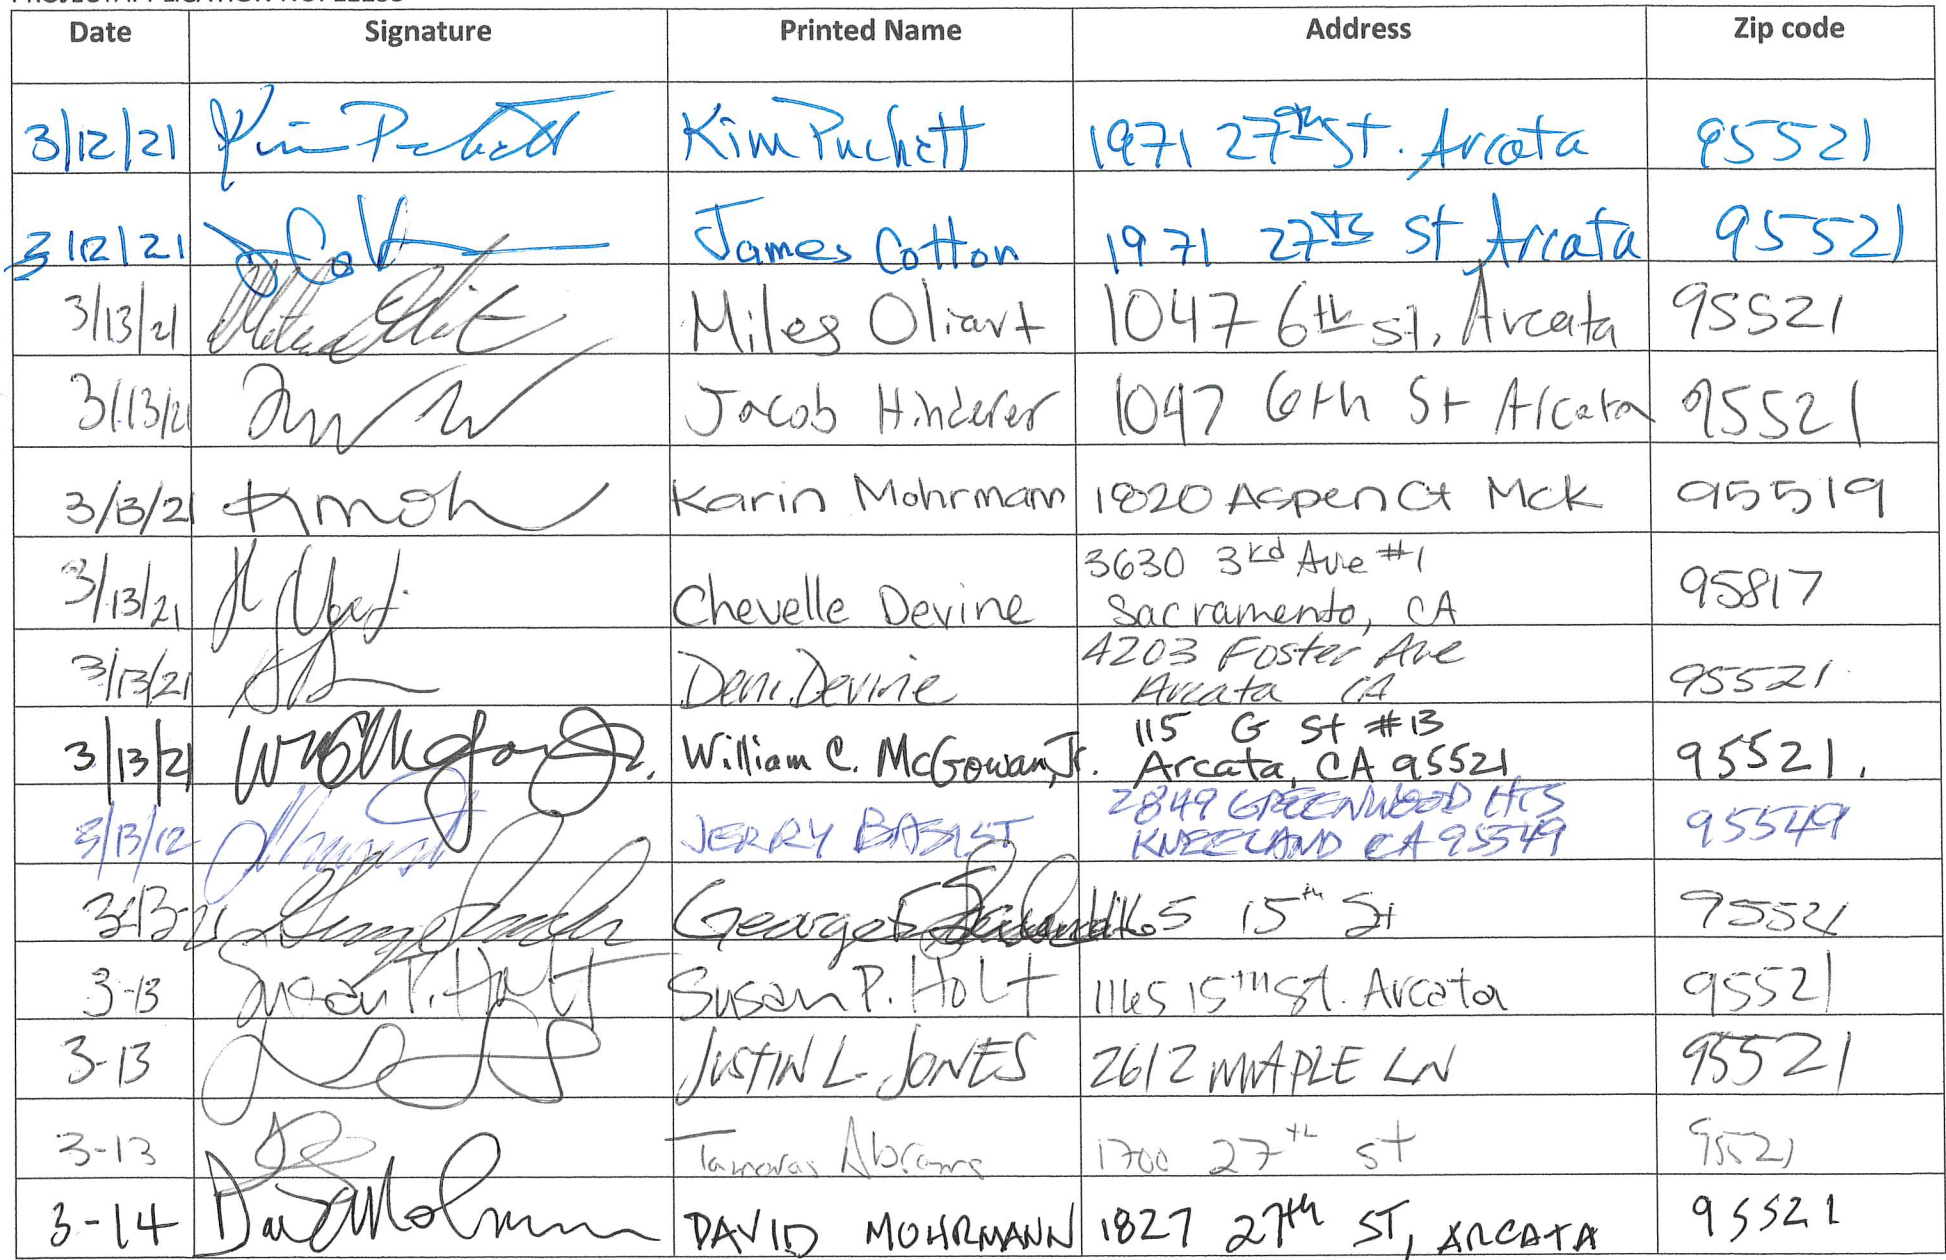 Date Signature Printed Name Address Zip code
3/12/21 Kim Puckett Kim Puckett 1971 27th St. Arcata 95521
3/12/21 James Cotton 1971 27th St Arcata 95521
3/13/21 Miles Oliart 1047 6th st, Arcata 95521
3/13/21 Jacob Hinderer 1047 6th St Arcata 95521
3/13/21 Karin Mohrmann 1820 Aspen Ct Mck 95519
3/13/21 Chevelle Devine 3630 3rd Ave #1 95817
Sacramento, CA
3/13/21 Deni Devine 4203 Foster Ave 95521
Arcata CA
3/13/21 William C. McGowan, Jr. 115 G St #13 95521.
Arcata, CA 95521
3/13/12 JERRY BASIST 2849 GREENWOOD HTS 95549
KNEELAND CA 95549
3-13-21 George 1165 15th St 95521
3-13 Susan P. Holt Susan P. Holt 1165 15TH St. Arcata 95521
3-13 JUSTIN L. JONES 2612 MAPLE LN 95521
3-13 Tamaras Abrams 1700 27th st
3-14 David Mohrmann DAVID MOHRMANN 1827 27th ST, ARCATA 95521